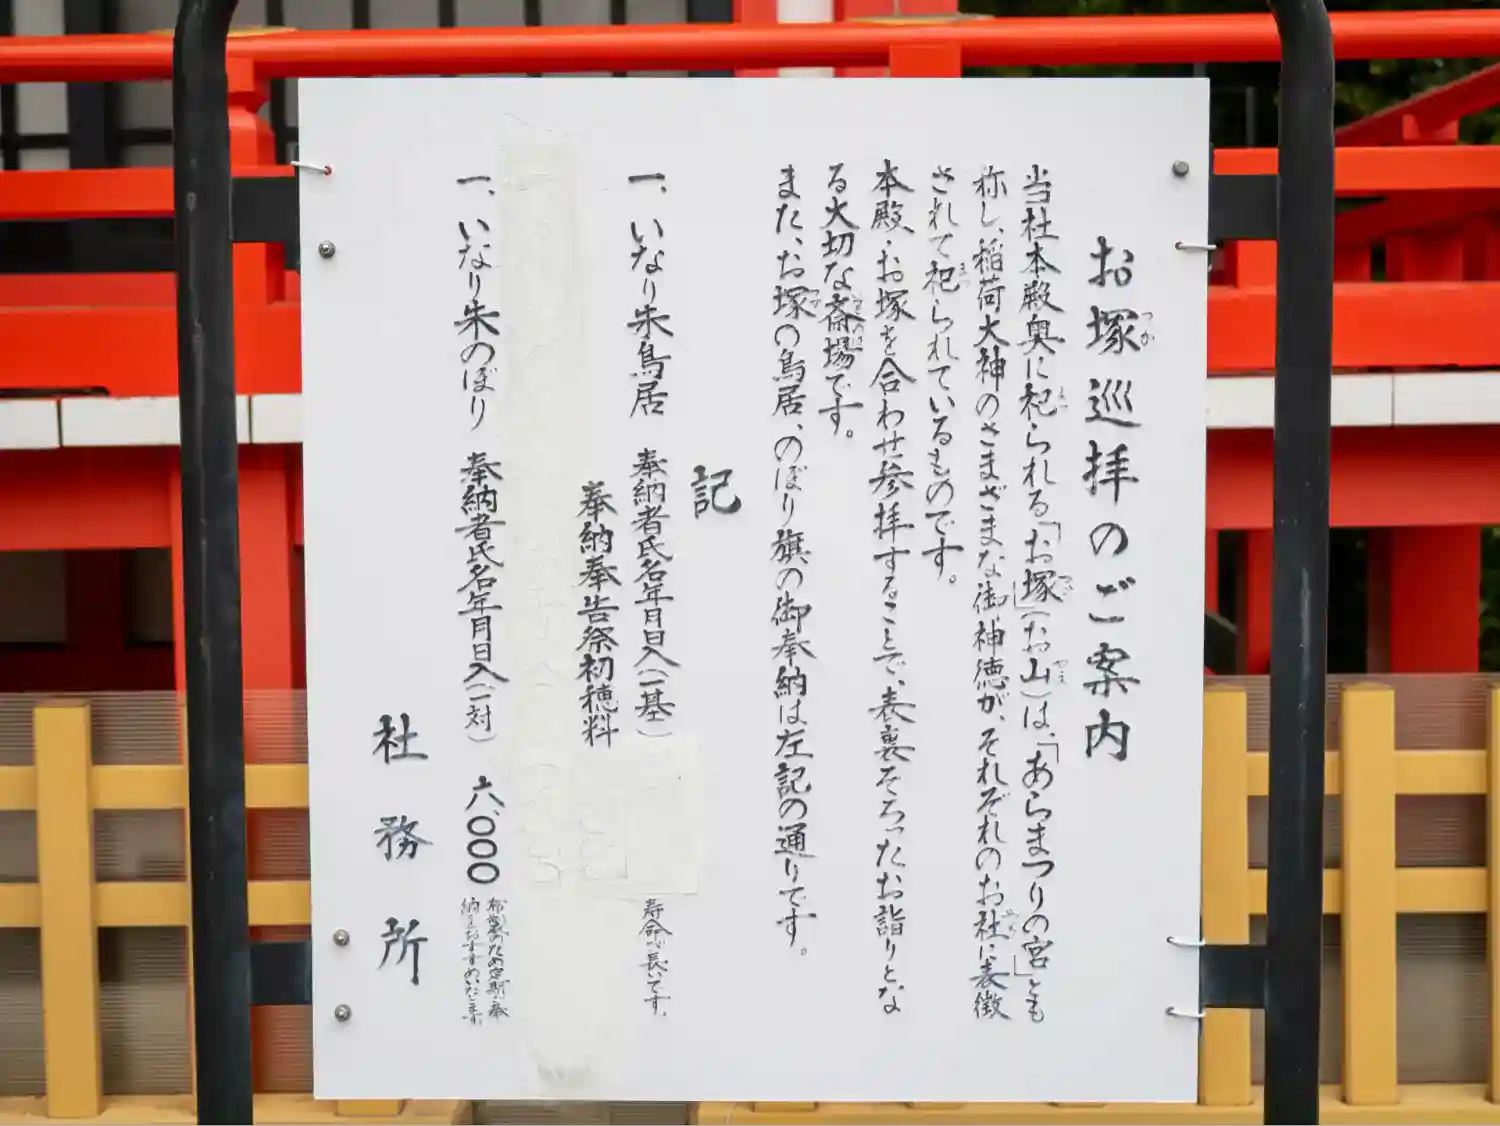 お塚巡拝のご案内
当社本殿奥に祀られる「お塚」(お山)は、「あらまつりの宮」とも
称し、稲荷大神のさまざまな御神徳が、それぞれのお社に表徴
されて祀られているものです。
本殿・お塚を合わせ参拝することで、表裏そろったお詣りとな
る大切な斎場です。
また、お塚の鳥居、のぼり旗の御奉納は左記の通りです。
記
一、いなり朱鳥居 奉納者氏名年月日入(一基) 寿命が長いです。
奉納奉告祭初穂料
一、いなり朱のぼり 奉納者氏名年月日入(一対) 六、〇〇〇 布製のため定期奉
納をおすすめいたします
社務所